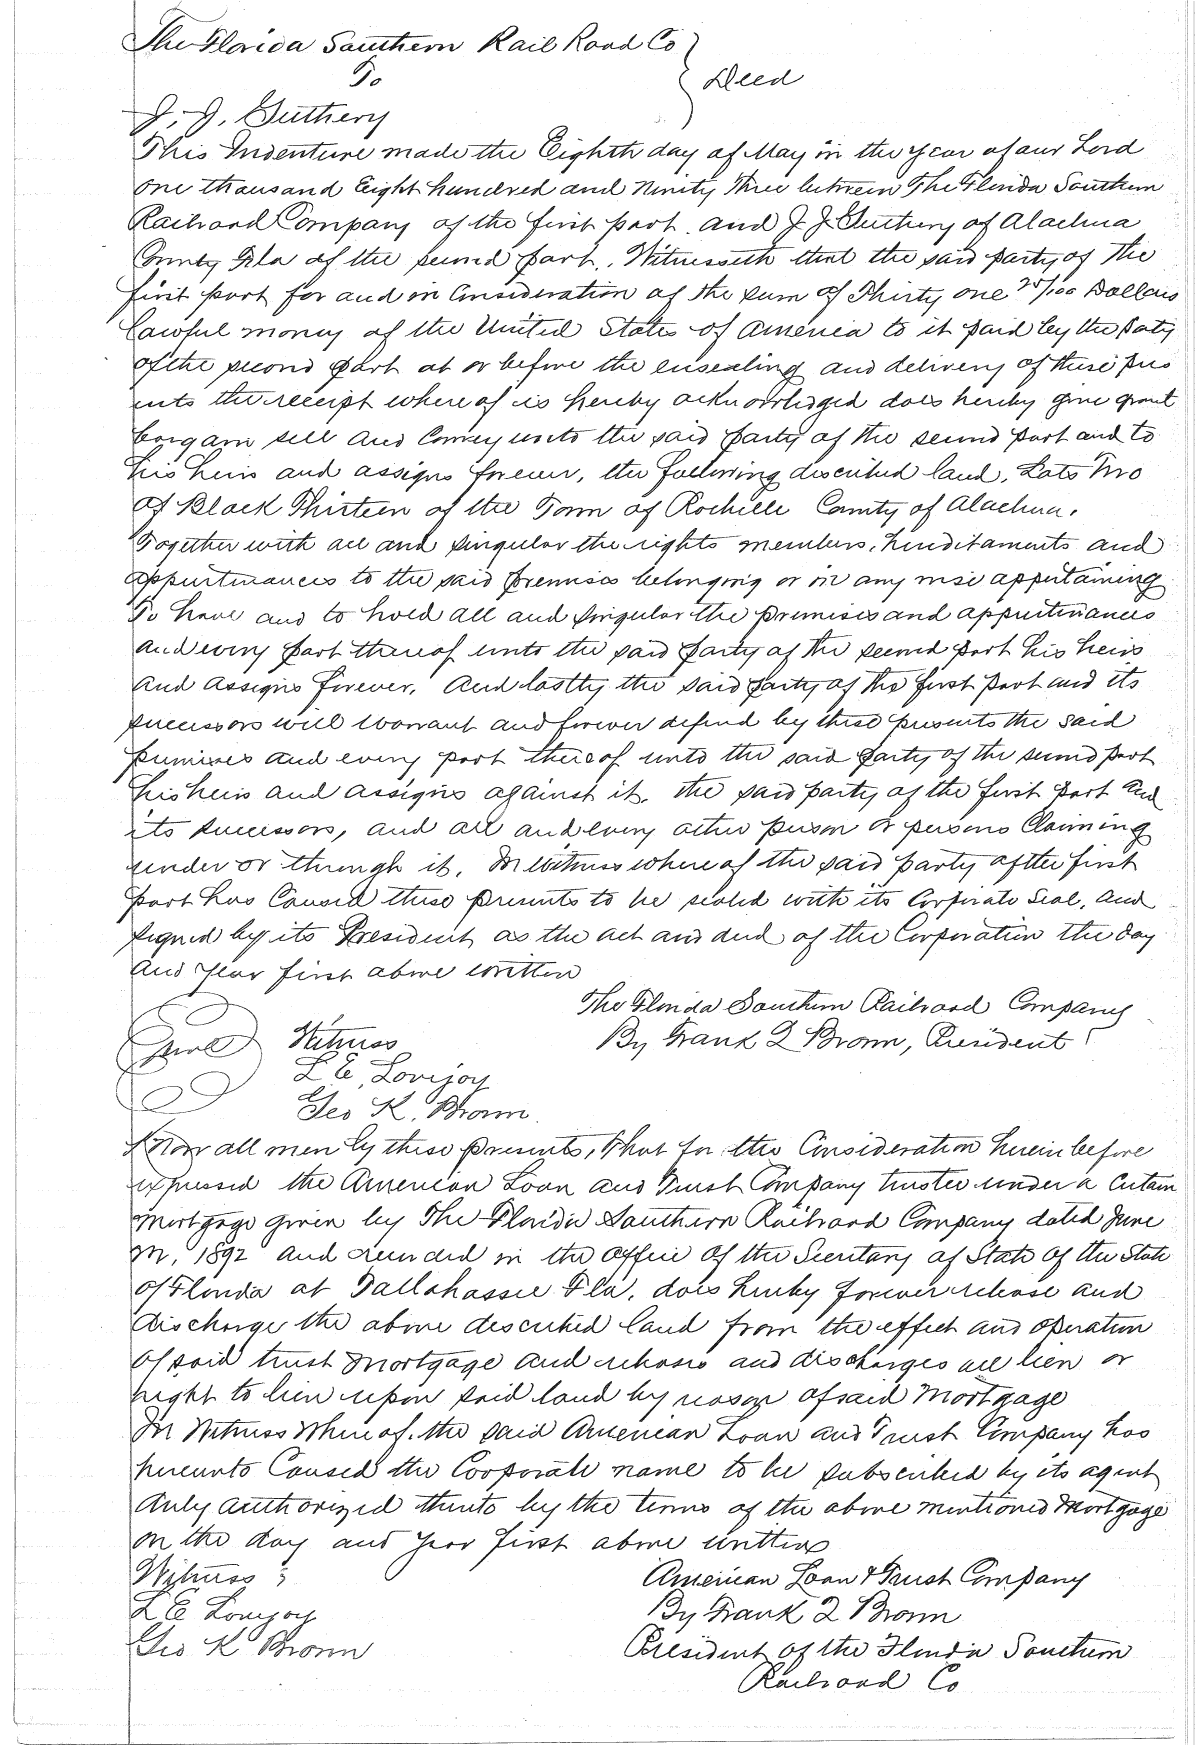 The Florida Southern Rail Road Co
To
Deed
J. J. Guthery
This Indenture made the Eighth day of May in the year of our Lord
one thousand Eight hundred and Ninity three between The Florida Southern
Railroad Company of the first part. and J J Guthery of Alachua
County Fla of the second part. Witnesseth that the said party of the
first part for and in Consideration of the sum of Thirty one /100 Dollars
lawful money of the United States of America to it paid by the party
of the second part at or before the ensealing and delivery of these pres
ents the receipt where of is hereby acknowledged does hereby give grant
bargain sell and Convey unto the said party of the second part and to
his heirs and assigns forever, the following described land. Lots Two
of Block Thirteen of the Town of Rochelle County of Alachua.
Together with all and singular the rights members, hereditaments and
appurtenances to the said premises belonging or in any wise appertaining
To have and to hold all and singular the premises and appurtenances
and every part thereof unto the said party of the second part his heirs
and assigns forever. And lastly the said party of the first part and its
successors will warrant and forever defend by these presents the said
premises and every part thereof unto the said party of the second part
his heirs and assigns against it, the said party of the first part and
its successors, and all and every other person or persons Claiming
under or through it. In witness where of the said party of the first
part has Caused these presents to be sealed with its Corporate Seal, and
signed by its President as the act and deed of the Corporation the day
and year first above written
The Florida Southern Railroad Company
Seal Witness By Frank Q Brown, President
L E, Lovejoy
Geo K. Brown.
Know all men by these presents, That for the Consideration herein before
expressed the American Loan and Trust Company trustee under a Certain
Mortgage given by The Florida Southern Railroad Company dated June
1892 and recorded in the office of the Secretary of State of the State
of Florida at Tallahassee Fla. does hereby forever release and
discharge the above described land from the effect and operation
of said trust Mortgage and release and discharges all lien or
right to lien upon said land by reason of said Mortgage
In Witness Where of, the said American Loan and Trust Company has
hereunto Caused the Corporate name to be subscribed by its agent
duly authorized thereto by the terms of the above mentioned Mortgage
on the day and year first above written
Witness: American Loan & Trust Company
L E Lovejoy By Frank Q Brown
Geo K Brown President of the Florida Southern
Railroad Co